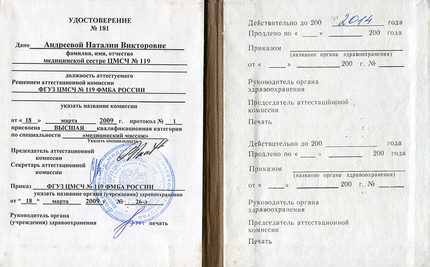 УДОСТОВЕРЕНИЕ
№ 181
Дано Андреевой Наталии Викторовне
фамилия, имя, отчество
медицинской сестре ЦМСЧ № 119
должность аттестуемого
Решением аттестационной комиссии
ФГУЗ ЦМСЧ № 119 ФМБА РОССИИ
указать название комиссии
от « 18 » марта 2009 г. протокол № 1
присвоена ВЫСШАЯ квалификационная категория
по специальности «медицинский массаж»
Указать специальность
Председатель аттестационной
комиссии
Секретарь аттестационной
комиссии
Приказ ФГУЗ ЦМСЧ № 119 ФМБА РОССИИ
указать название органа (учреждения) здравоохранения
от " 18 " марта 2009 г. № 26-л
Руководитель органа
(учреждения) здравоохранения печать
Действительно до 200 2014 года
Продлено по « » 200 года
Приказом
(название органа здравоохранения)
от « » 200 г. №
Руководитель органа
здравоохранения
Председатель аттестационной
комиссии
Печать
Действительно до 200 года
Продлено по « » 200 года
Приказом
(название органа здравоохранения)
от « » 200 г. №
Руководитель органа
здравоохранения
Председатель аттестационной
комиссии
Печать